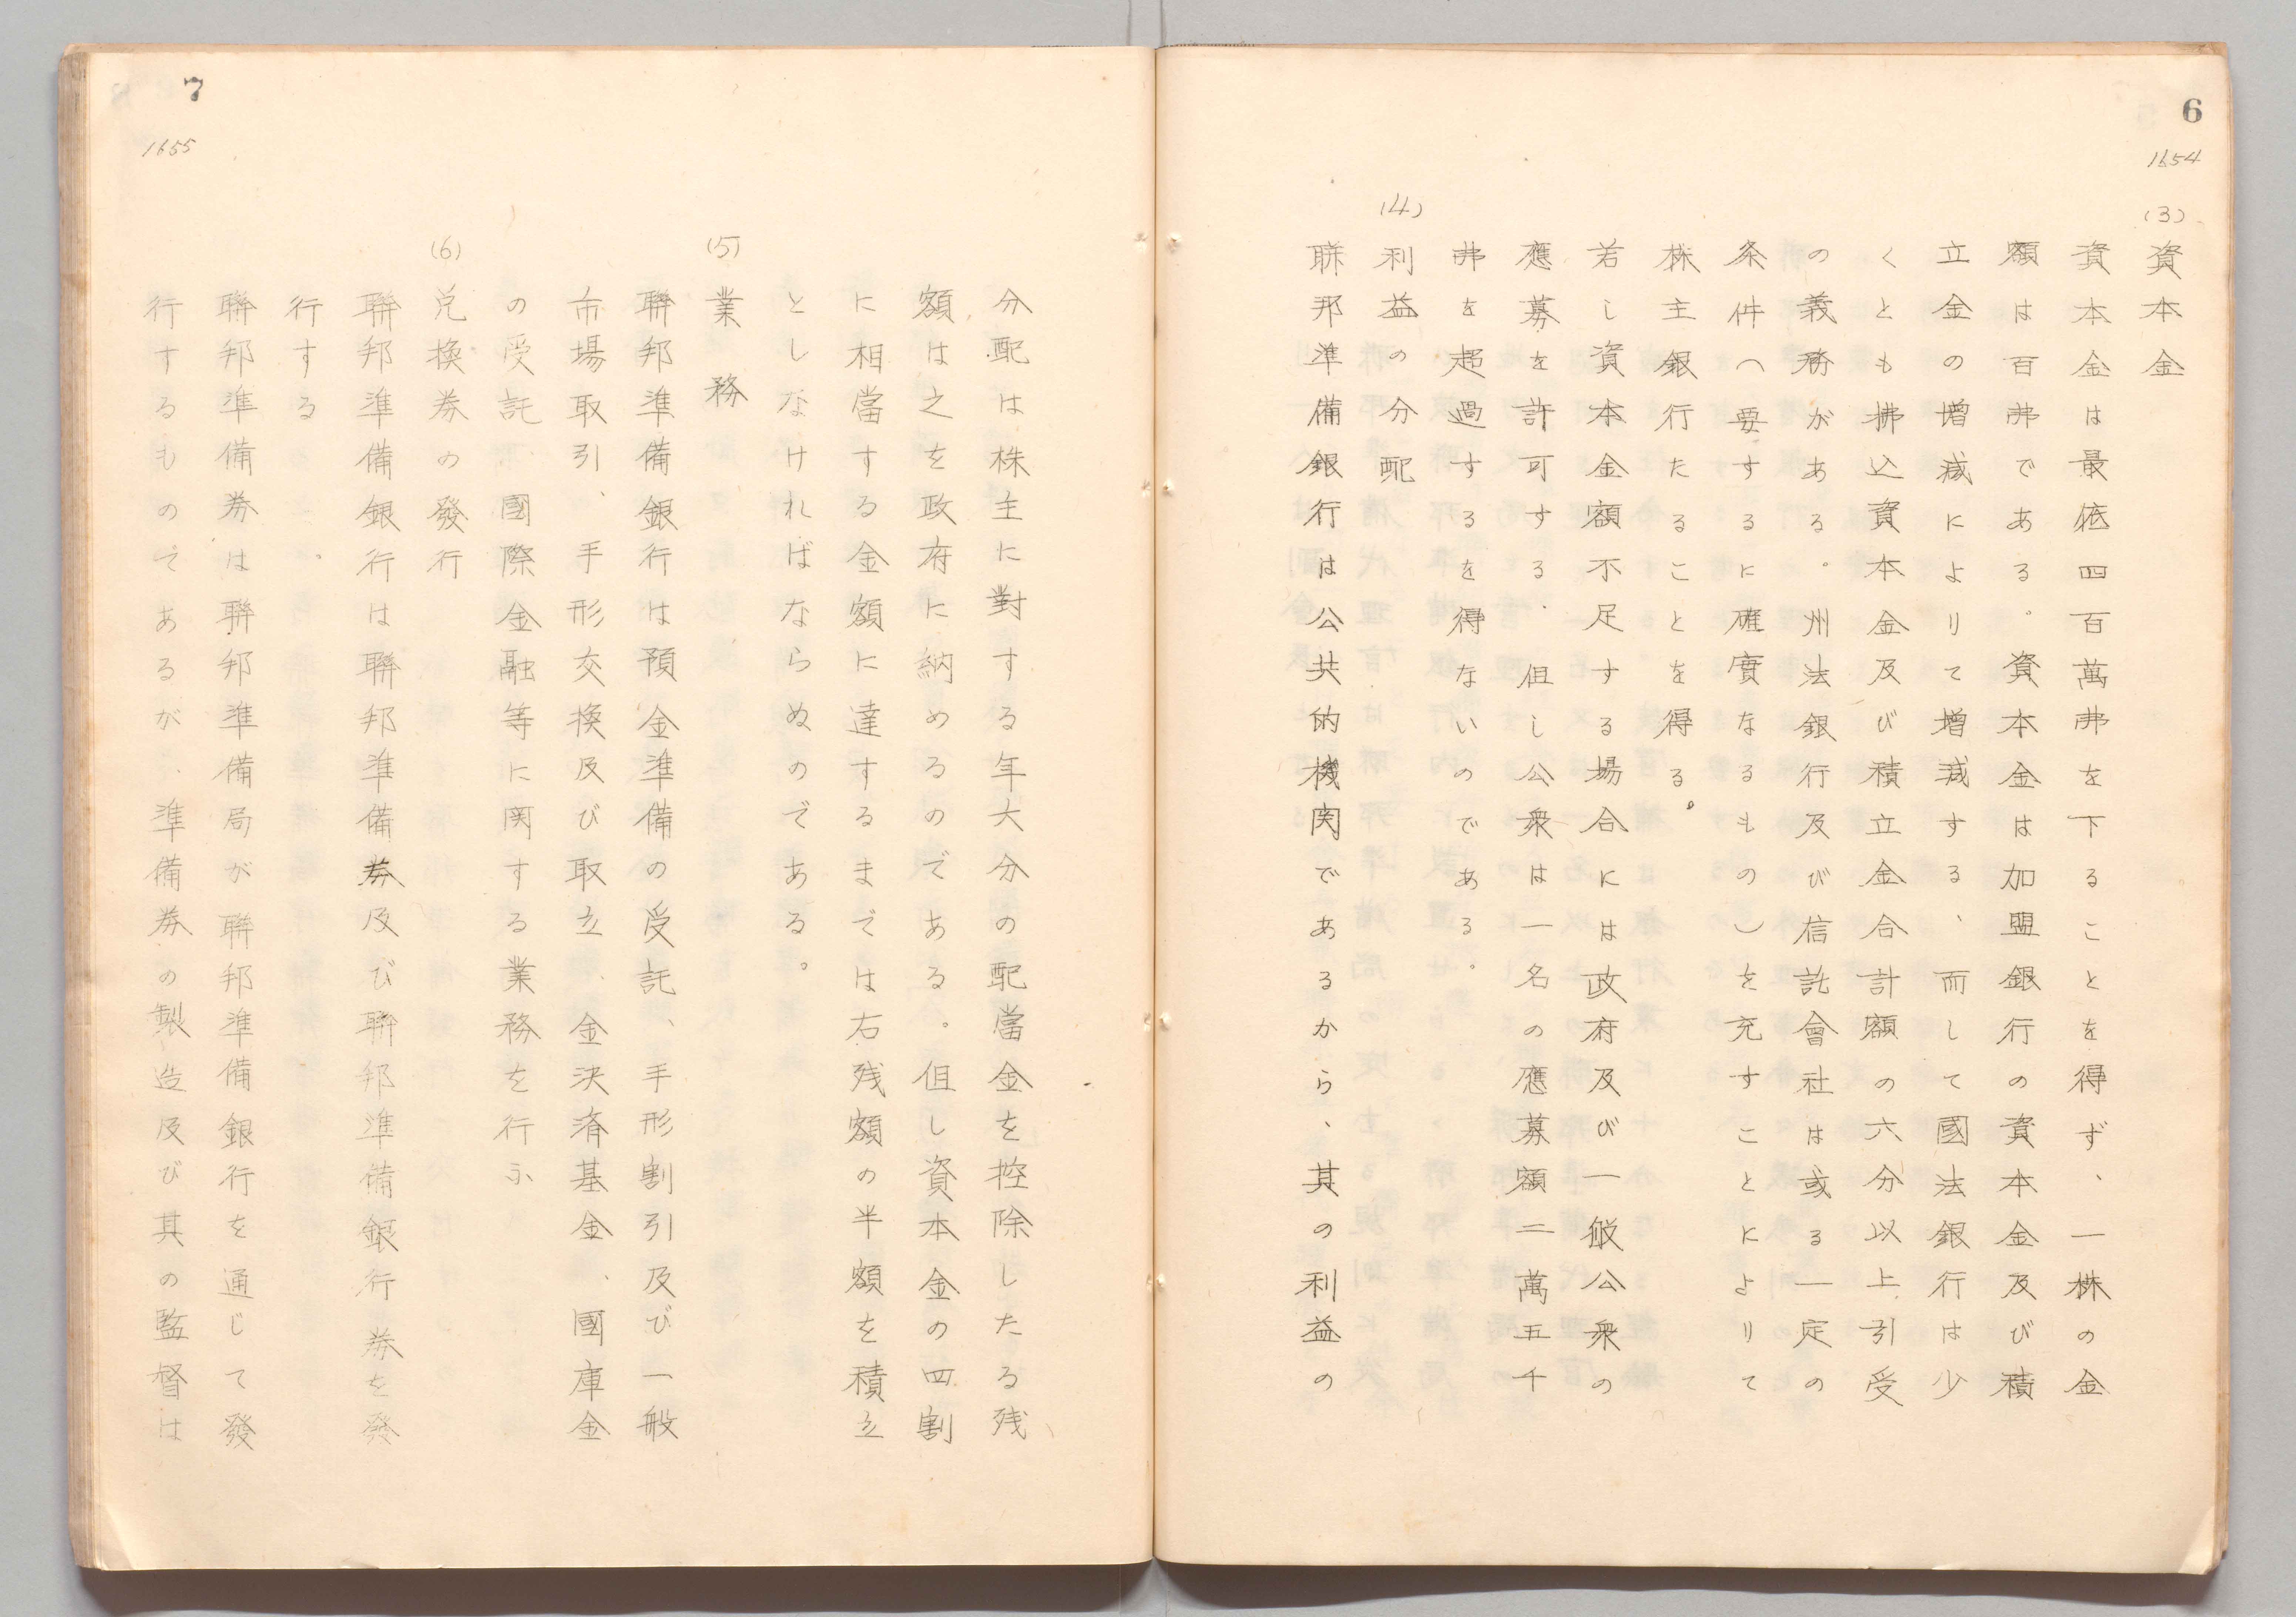 6
1654
(3)
資本金
資本金は最依四百萬弗を下ることを得ず、一株の金
額は百弗である。資本金は加盟銀行の資本金及び積
立金の増減によりて増減する、而して國法銀行は少
くとも拂込資本金及び積立金合計額の六分以上引受
の義務がある。州法銀行及び信託會社は或る一定の
条件(要するに確實なるもの)を充すことによりて
株主銀行たることを得る。
若し資本金額不足する場合には政府及び一般公衆の
應募を許可する.但し公衆は一名の應募額二萬五千
弗を超過するを得ないのである。
(4)
利益の分配
聯邦準備銀行は公共的機関であるから、其の利益の
7
1655
分配は株主に對する年大分の配當金を控除したる残
額は之を政府に納めるのである。但し資本金の四割
に相當する金額に達するまでは右残額の半額を積立
としなければならぬのである。
(5)
業務
聯邦準備銀行は預金準備の受託、手形割引及び一般
市場取引、手形交換及び取立、金決済基金、國庫金
の受託、國際金融等に関する業務を行ふ
(6)
兌換券の發行
聯邦準備銀行は聯邦準備券及び聯邦準備銀行券を發
行する。
聯邦準備券は聯邦準備局が聯邦準備銀行を通じて發
行するものであるが、準備券の製造及び其の監督は